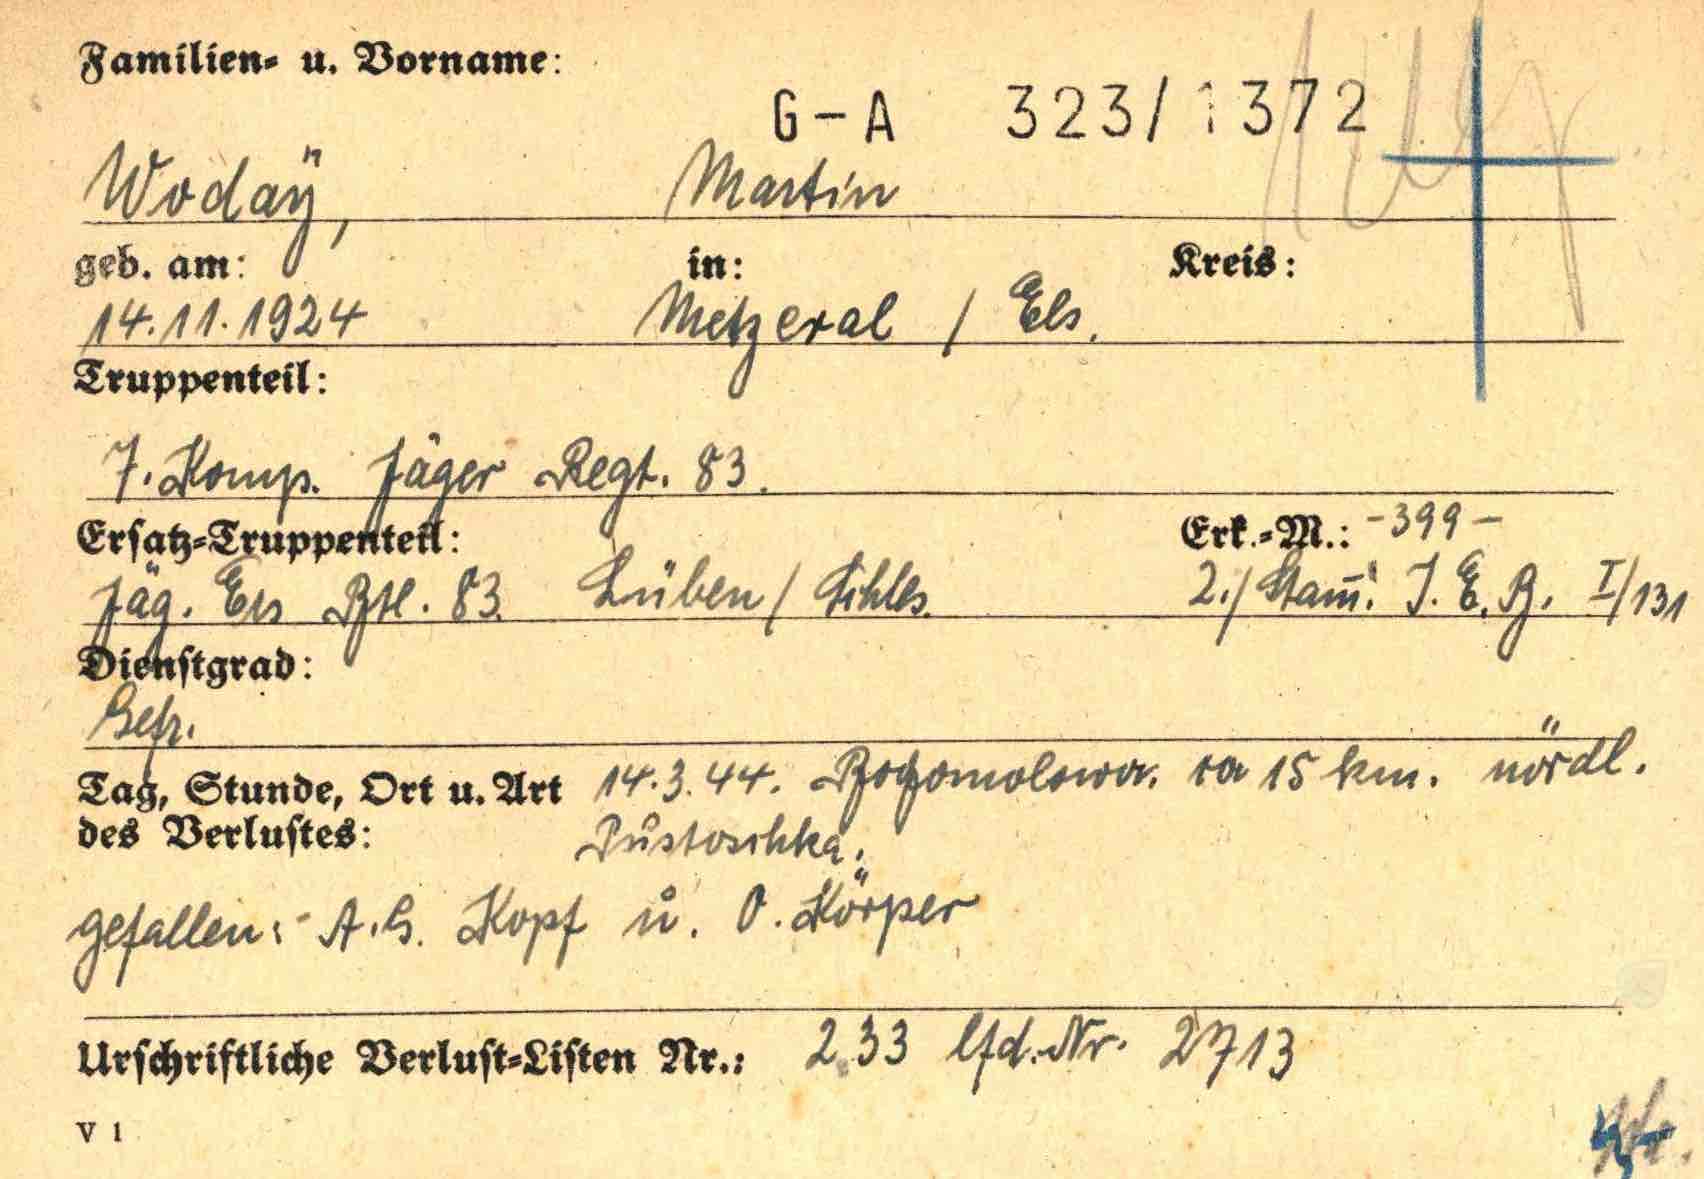 Familien- u. Vorname:
G-A 323/1372
Woday, Martin
geb. am: in: Kreis:
14.11.1924 Metzeral / Els.
Truppenteil:
7. Komp. Jäger Regt. 83.
Ersatz-Truppenteil: Erk.-M.: -399-
Jäg. Ers Btl. 83. Lüben / Schles. 2./ Stam. I.E.B. I/131
Dienstgrad:
Gefr.
Tag, Stunde, Ort u. Art 14.3.44. ca 15 km. nördl.
des Verlustes: Pustoschka.
gefallen: A.G. Kopf u. O. Körper
Urschriftliche Verlust-Listen Nr.: 233 lfd. Nr. 2713
V 1